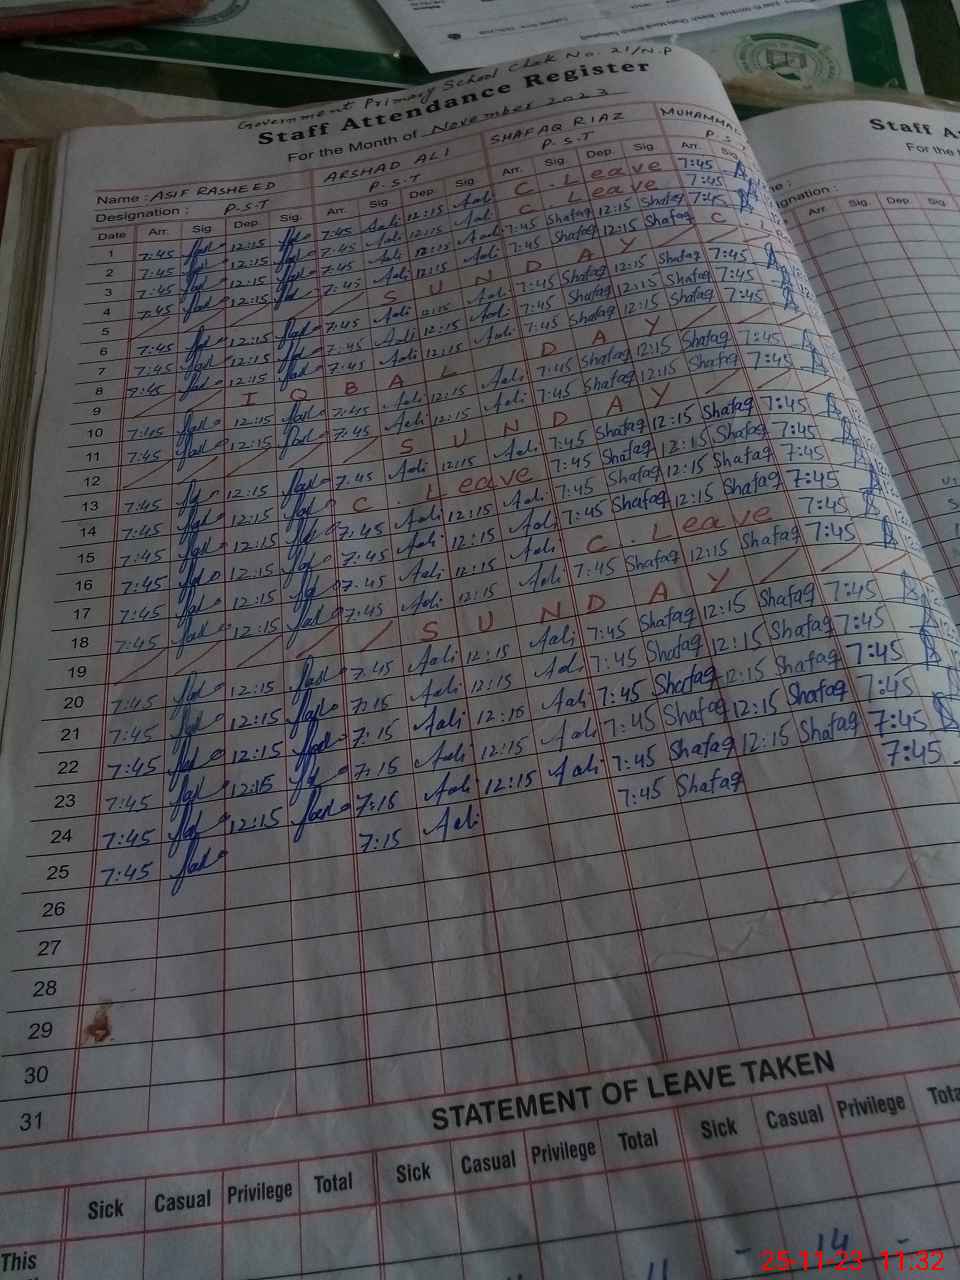 Government Primary School Chak No. 21/N.P
Staff Attendance Register
For the Month of November 2023
Name : ASIF RASHEED ARSHAD ALI SHAFAQ RIAZ MUHAMMAD
Designation : P.S.T P.S.T P.S.T P.S.T
Date Arr. Sig. Dep. Sig. Arr. Sig. Dep. Sig. Arr. Sig. Dep. Sig. Arr. Sig.
1 7:45 12:15 7:45 Aali 12:15 Aali C. Leave 7:45
2 7:45 12:15 7:45 Aali 12:15 Aali C. Leave 7:45
3 7:45 12:15 7:45 Aali 12:15 Aali 7:45 Shafaq 12:15 Shafaq 7:45
4 7:45 12:15 7:45 Aali 12:15 Aali 7:45 Shafaq 12:15 Shafaq C. Lea
5 S U N D A Y
6 7:45 12:15 7:45 Aali 12:15 Aali 7:45 Shafaq 12:15 Shafaq 7:45
7 7:45 12:15 7:45 Aali 12:15 Aali 7:45 Shafaq 12:15 Shafaq 7:45
8 7:45 12:15 7:45 Aali 12:15 Aali 7:45 Shafaq 12:15 Shafaq 7:45
9 I Q B A L D A Y
10 7:45 12:15 7:45 Aali 12:15 Aali 7:45 Shafaq 12:15 Shafaq 7:45
11 7:45 12:15 7:45 Aali 12:15 Aali 7:45 Shafaq 12:15 Shafaq 7:45
12 S U N D A Y
13 7:45 12:15 7:45 Aali 12:15 Aali 7:45 Shafaq 12:15 Shafaq 7:45
14 7:45 12:15 C. Leave 7:45 Shafaq 12:15 Shafaq 7:45
15 7:45 12:15 7:45 Aali 12:15 Aali 7:45 Shafaq 12:15 Shafaq 7:45
16 7:45 12:15 7:45 Aali 12:15 Aali 7:45 Shafaq 12:15 Shafaq 7:45
17 7:45 12:15 7:45 Aali 12:15 Aali C. Leave 7:45
18 7:45 12:15 7:45 Aali 12:15 Aali 7:45 Shafaq 12:15 Shafaq 7:45
19 S U N D A Y
20 7:45 12:15 7:45 Aali 12:15 Aali 7:45 Shafaq 12:15 Shafaq 7:45
21 7:45 12:15 7:15 Aali 12:15 Aali 7:45 Shafaq 12:15 Shafaq 7:45
22 7:45 12:15 7:15 Aali 12:15 Aali 7:45 Shafaq 12:15 Shafaq 7:45
23 7:45 12:15 7:15 Aali 12:15 Aali 7:45 Shafaq 12:15 Shafaq 7:45
24 7:45 12:15 7:15 Aali 12:15 Aali 7:45 Shafaq 12:15 Shafaq 7:45
25 7:45 7:15 Aali 7:45 Shafaq 7:45
26
27
28
29
30
31
STATEMENT OF LEAVE TAKEN
Sick Casual Privilege Total Sick Casual Privilege Total Sick Casual Privilege Tota
This
11 - 14 -
Staff A
For the
Arr. Sig. Dep. Sig.
25-11-23 11:32